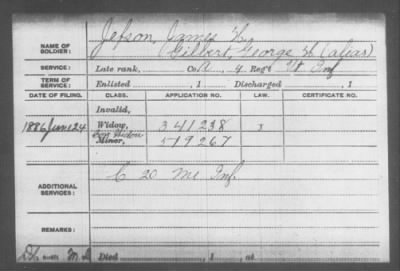 Jepson, James H,
NAME OF SOLDIER: Gilbert, George H (alias)
SERVICE: Late rank, Co. A, 9 Reg't Vt Inf
TERM OF SERVICE: Enlisted , 1 Discharged , 1
DATE OF FILING. CLASS. APPLICATION NO. LAW. CERTIFICATE NO.
Invalid,
1886 June 24 Widow, 341238
Minor, 519267
ADDITIONAL SERVICES: C 20 Me Inf.
REMARKS:
Died , 1 , at